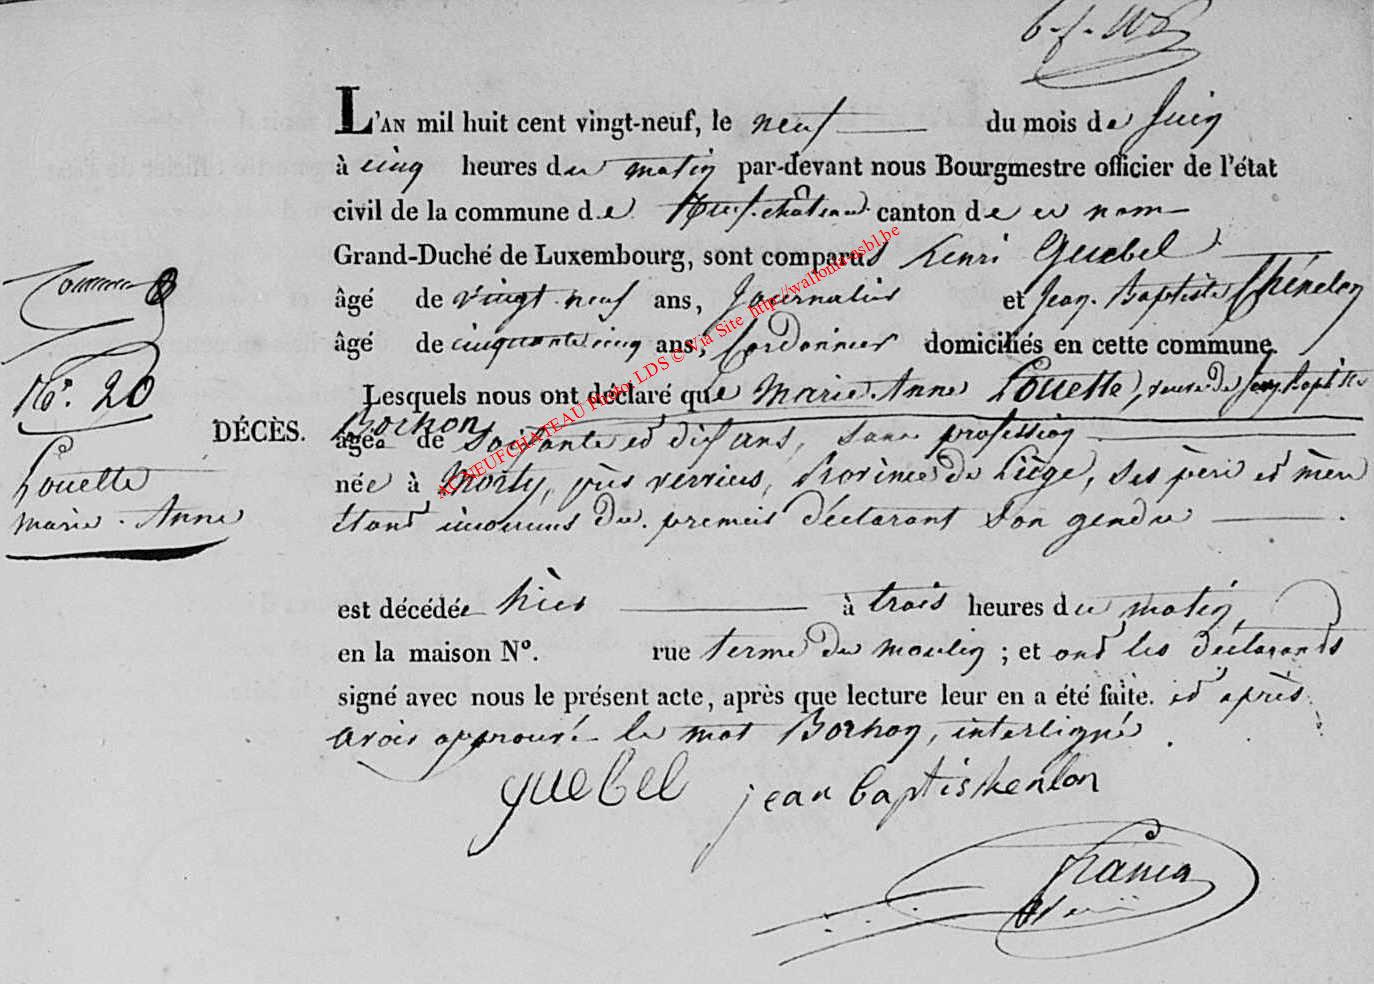 L'AN mil huit cent vingt-neuf, le neuf du mois de Juin
à cinq heures du matin par-devant nous Bourgmestre officier de l'état
civil de la commune de Neufchâteau canton de ce nom
Grand-Duché de Luxembourg, sont comparus henri Guebel
âgé de vingt-neuf ans, Journalier et Jean-Baptiste Thénelon
âgé de cinquante cinq ans, Cordonnier domiciliés en cette commune.
Lesquels nous ont déclaré que Marie-Anne Louette, veuve de Jean baptiste
Borhon
âgée de soixante et dix ans, sans profession
née à près verviers, Province de Liège, ses père et mère
étant inconnus du premier déclarant son gendre
est décédée hier à trois heures du matin
en la maison N°. rue terme du moulin ; et ont les déclarants
signé avec nous le présent acte, après que lecture leur en a été faite. et après
avoir approuvé le mot Borhon, interligné.
guebel jean baptis
DÉCÈS.
N°. 20
Louette
marie-Anne
AC NEUFCHATEAU Photo LDS © via Site http://wallonia-asbl.be